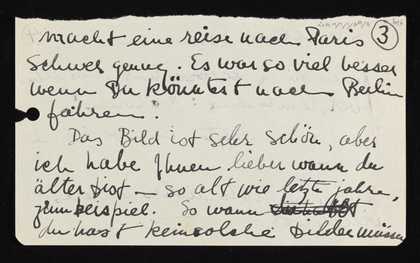 3
macht eine reise nach Paris
Schwer genug. Es war so viel besser
wenn Du könntest nach Berlin
fahren.
Das Bild ist sehr schön, aber
ich habe Ihnen lieber wann du
älter bist — so alt wie letzte jahre,
zum beispiel. So wann
du hast keine solche bilder müssen